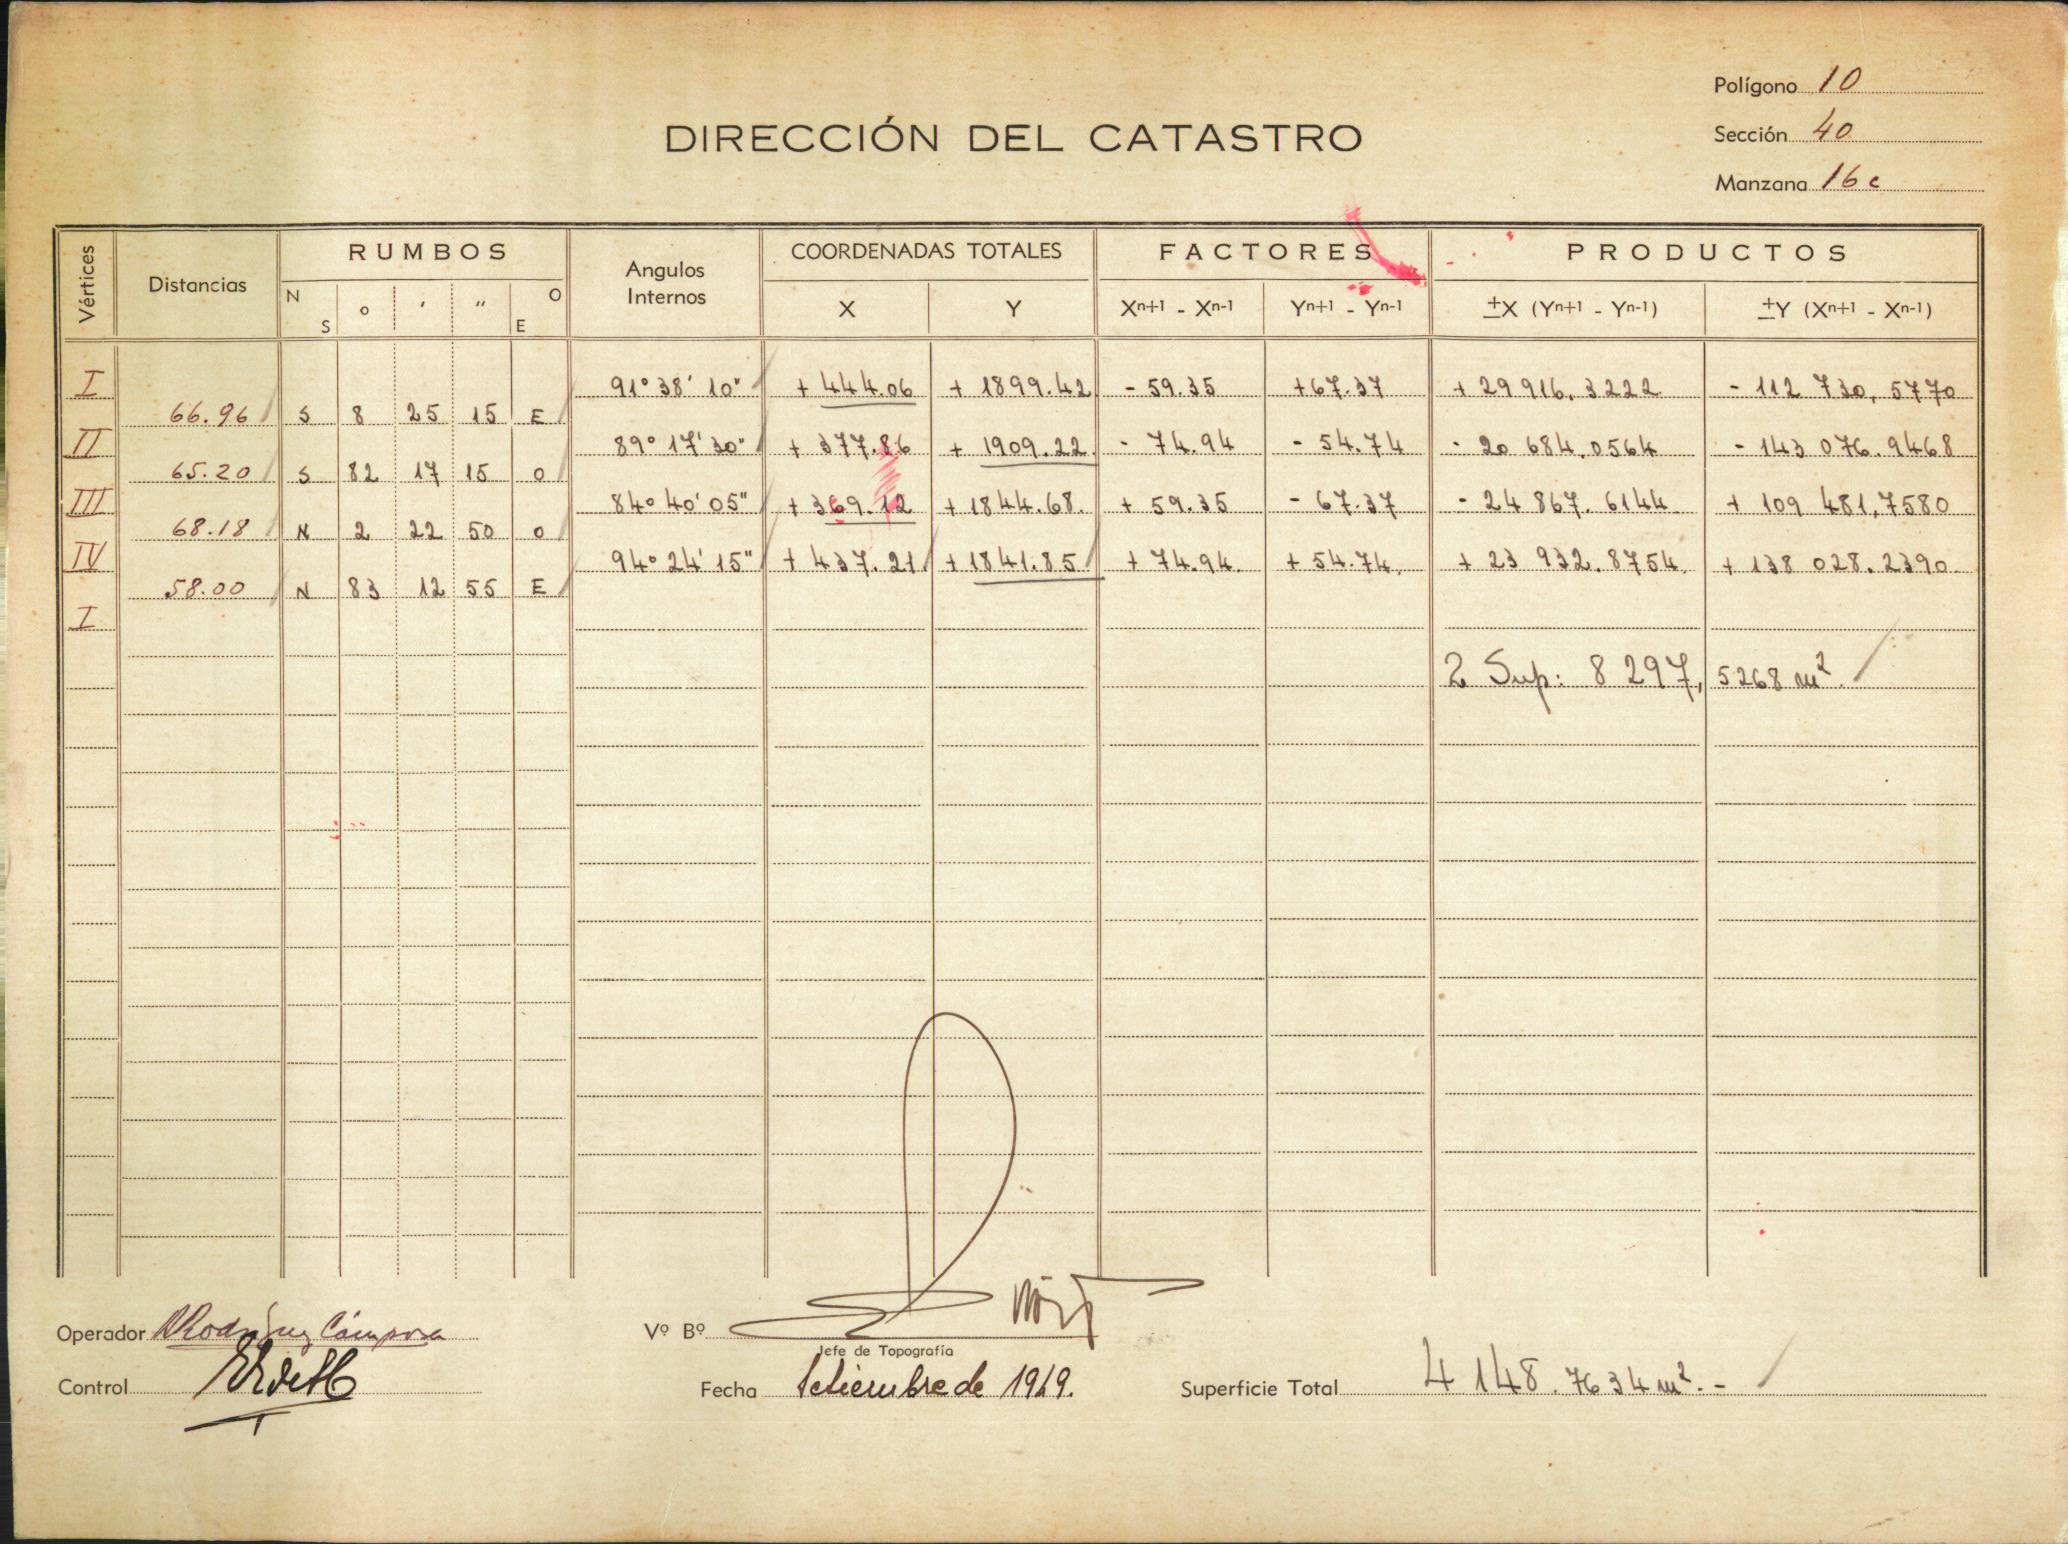 Polígono 10
DIRECCIÓN DEL CATASTRO
Sección 40
Manzana 16 c
Vértices Distancias RUMBOS Angulos Internos COORDENADAS TOTALES FACTORES PRODUCTOS
N S ° ' " O E X Y Xn+1 - Xn-1 Yn+1 - Yn-1 ±X (Yn+1 - Yn-1) ±Y (Xn+1 - Xn-1)
I 91° 38' 10" + 444.06 + 1899.42 - 59.35 +67.37 + 29 916. 3222 - 112 730, 5770
66.96 S 8 25 15 E
II 89° 17' 30" + 377.86 + 1909.22 - 74.94 - 54.74 - 20 684.0564 - 143 076.9468
65.20 S 82 17 15 O
III 84° 40' 05" + 369.12 + 1844.68. + 59.35 - 67.37 - 24 867. 6144 + 109 481,7580
68.18 N 2 22 50 O
IV 94° 24' 15" + 437.21 + 1841.85 + 74.94 + 54.74 + 23 932.8754 + 138 028.2390
58.00 N 83 12 55 E
I
2 Sup: 8 297, 5268 m².
Operador Rodríguez Cámpora
Vº Bº
Jefe de Topografía
Control
Fecha Setiembre de 1949.
Superficie Total 4 148. 7634 m². -